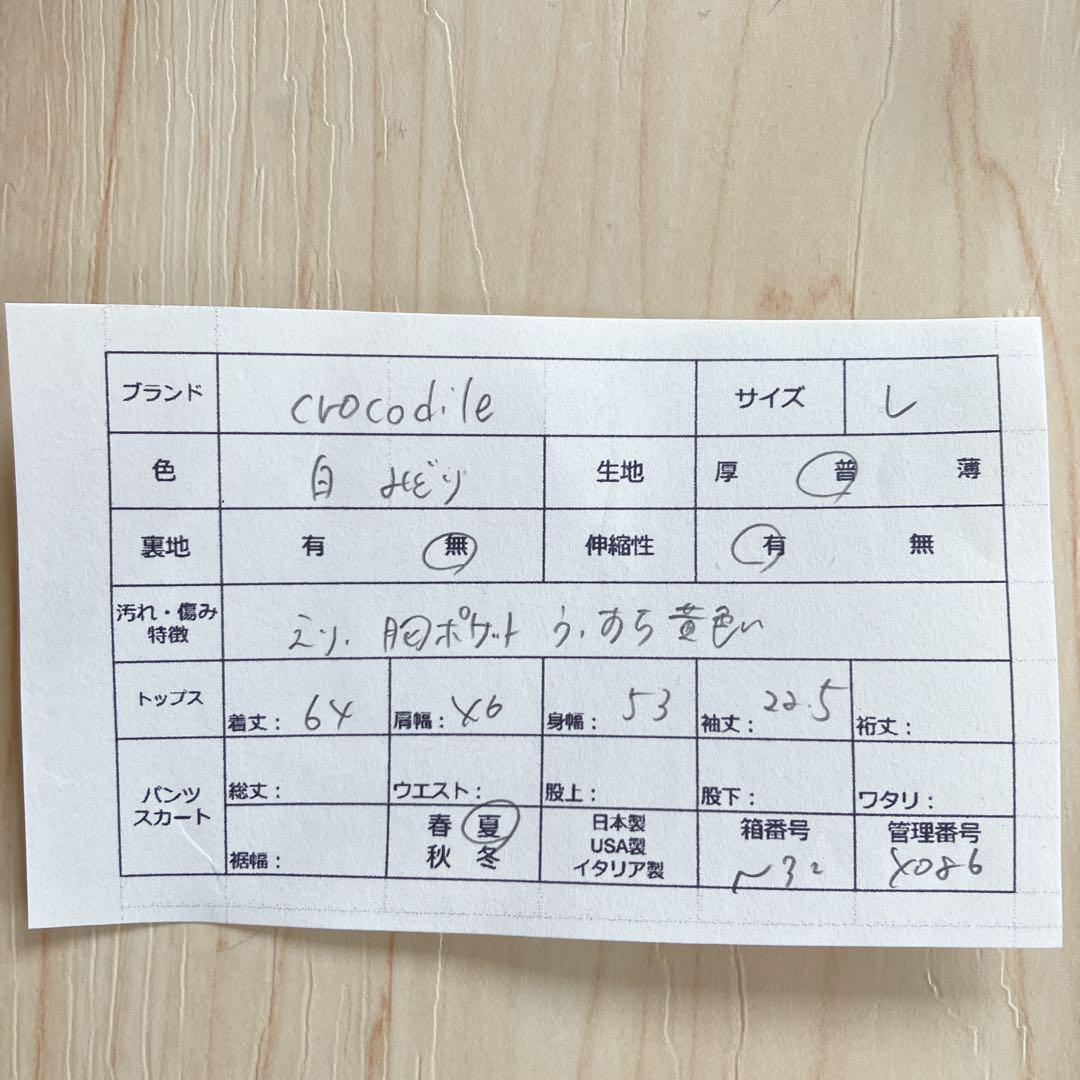 ブランド crocodile サイズ L
色 白 みどり 生地 厚 普 薄
裏地 有 無 伸縮性 有 無
汚れ・傷み
特徴 えり、胸ポケット うっすら黄色い
トップス 着丈: 64 肩幅: 46 身幅: 53 袖丈: 22.5 裄丈:
パンツ
スカート
総丈: ウエスト: 股上: 股下: ワタリ:
裾幅:
春 夏
秋 冬
日本製
USA製
イタリア製
箱番号
管理番号
4086